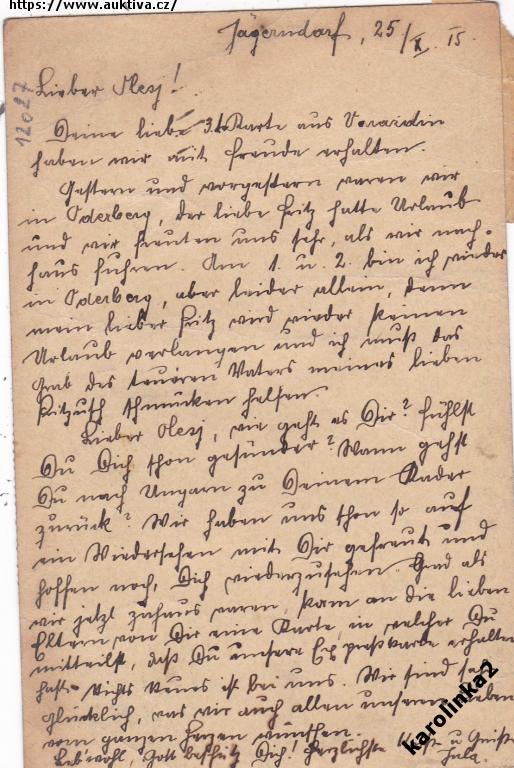 https://www.auktiva.cz/
Jägerndorf, 25/X. 15.
12027
Lieber Olesj!
Deine liebe 3. Karte aus Varaždin
haben wir mit Freude erhalten.
Gestern und vorgestern waren wir
in Oderberg, der liebe Fritz hatte Urlaub
und wir freuten uns sehr, als wir nach-
haus fuhren. Am 1. u. 2. bin ich wieder
in Oderberg, aber leider allein, denn
mein lieber Fritz wird wieder keinen
Urlaub verlangen und ich muß das
Grab des teueren Vaters meines lieben
schmücken helfen.
Lieber Olesj, wie geht es Dir? Fühlst
Du Dich schon gesünder? Wann gehst
Du nach Ungarn zu Deinem Kader
zurück? Wir haben uns schon so auf
ein Wiedersehen mit Dir gefreut und
hoffen noch, Dich wiederzusehen. Grad als
wir jetzt zuhaus waren, kam an die lieben
Eltern von Dir eine Karte, in welcher Du
mitteilst, daß Du unsere erhalten
hast. Nichts Neues ist bei uns. Wir sind sehr
glücklich, was wir auch allen unseren Lieben
vom ganzen Herzen wünschen.
Leb'wohl, Gott beschütz Dich! Herzlichste u. Grüße
Jula.
karolinka2